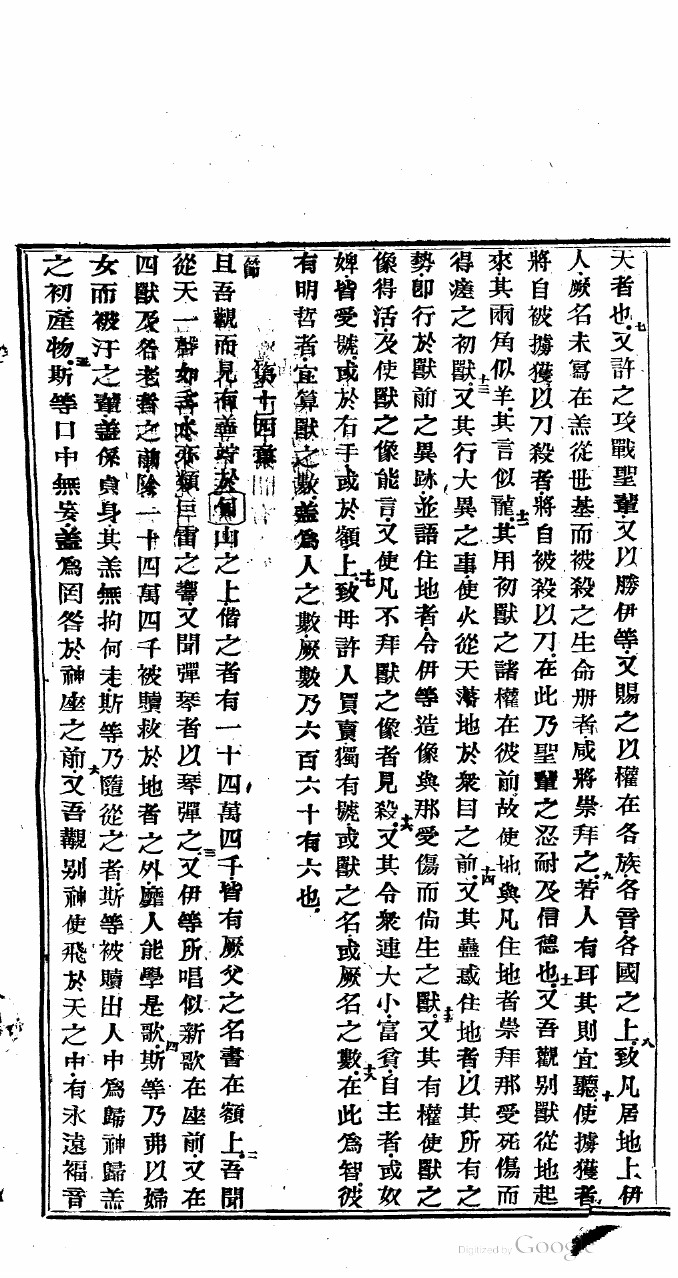 大者也又許之攻戰聖輩又以勝伊等又賜之以權在各族各音各國之上致凡居地上伊
人厥名未寫在羔從世基而被殺之生命册者咸將崇拜之若人有耳其則宜聽使擄獲者
將自被擄獲以刀殺者將自被殺以刀在此乃聖輩之忍耐及信德也又吾觀别獸從地起
來其兩角似羊其言似龍其用初獸之諸權在彼前故使地與凡住地者崇拜那受死傷而
得瘥之初獸又其行大異之事使火從天落地於衆目之前又其蠱惑住地者以其所有之
勢卽行於獸前之異跡並語住地者令伊等造像與那受傷而尙生之獸又其有權使獸之
像得活及使獸之像能言又使凡不拜獸之像者見殺又其令衆連大小富貧自主者或奴
婢皆受號或於右手或於額上致毋許人買賣獨有號或獸之名或厥名之數在此爲智彼
有明哲者宜算獸之數蓋爲人之數厥數乃六百六十有六也
第十四章
節
且吾觀而見有羔 於 山之上偕之者有一十四萬四千皆有厥父之名書在額上吾聞
從天一聲如 水亦類巨雷之響又聞彈琴者以琴彈之又伊等所唱似新歌在座前又在
四獸及咎老者之前除一十四萬四千被贖救於地者之外靡人能學是歌斯等乃弗以婦
女而被汙之輩蓋係貞身其羔無拘何走斯等乃隨從之者斯等被贖出人中爲歸神歸羔
之初產物斯等口中無妄蓋爲罔咎於神座之前又吾觀别神使飛於天之中有永遠福音
Digitized by Google